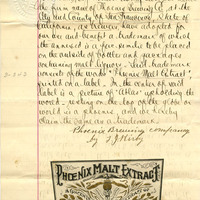 the firm name of Phoenix Brewing Co, at the
City and County of San Francisco, State of
California, as Brewers have adopted for
our use and benefit a trademark of which
the annexed is a fac-simile to be placed
on the outside of bottles and packages
containing malt liquors. Said trademark
consists of the words "Phoenix Malt Extract"
printed on a label. In the center of said
label is a picture of "Atlas" upholding the
world, resting on the top of the globe or
world is a phoenix, and we hereby
claim the same as a trademark.
Phoenix Brewing Company
by
PHOENIX MALT EXTRACT